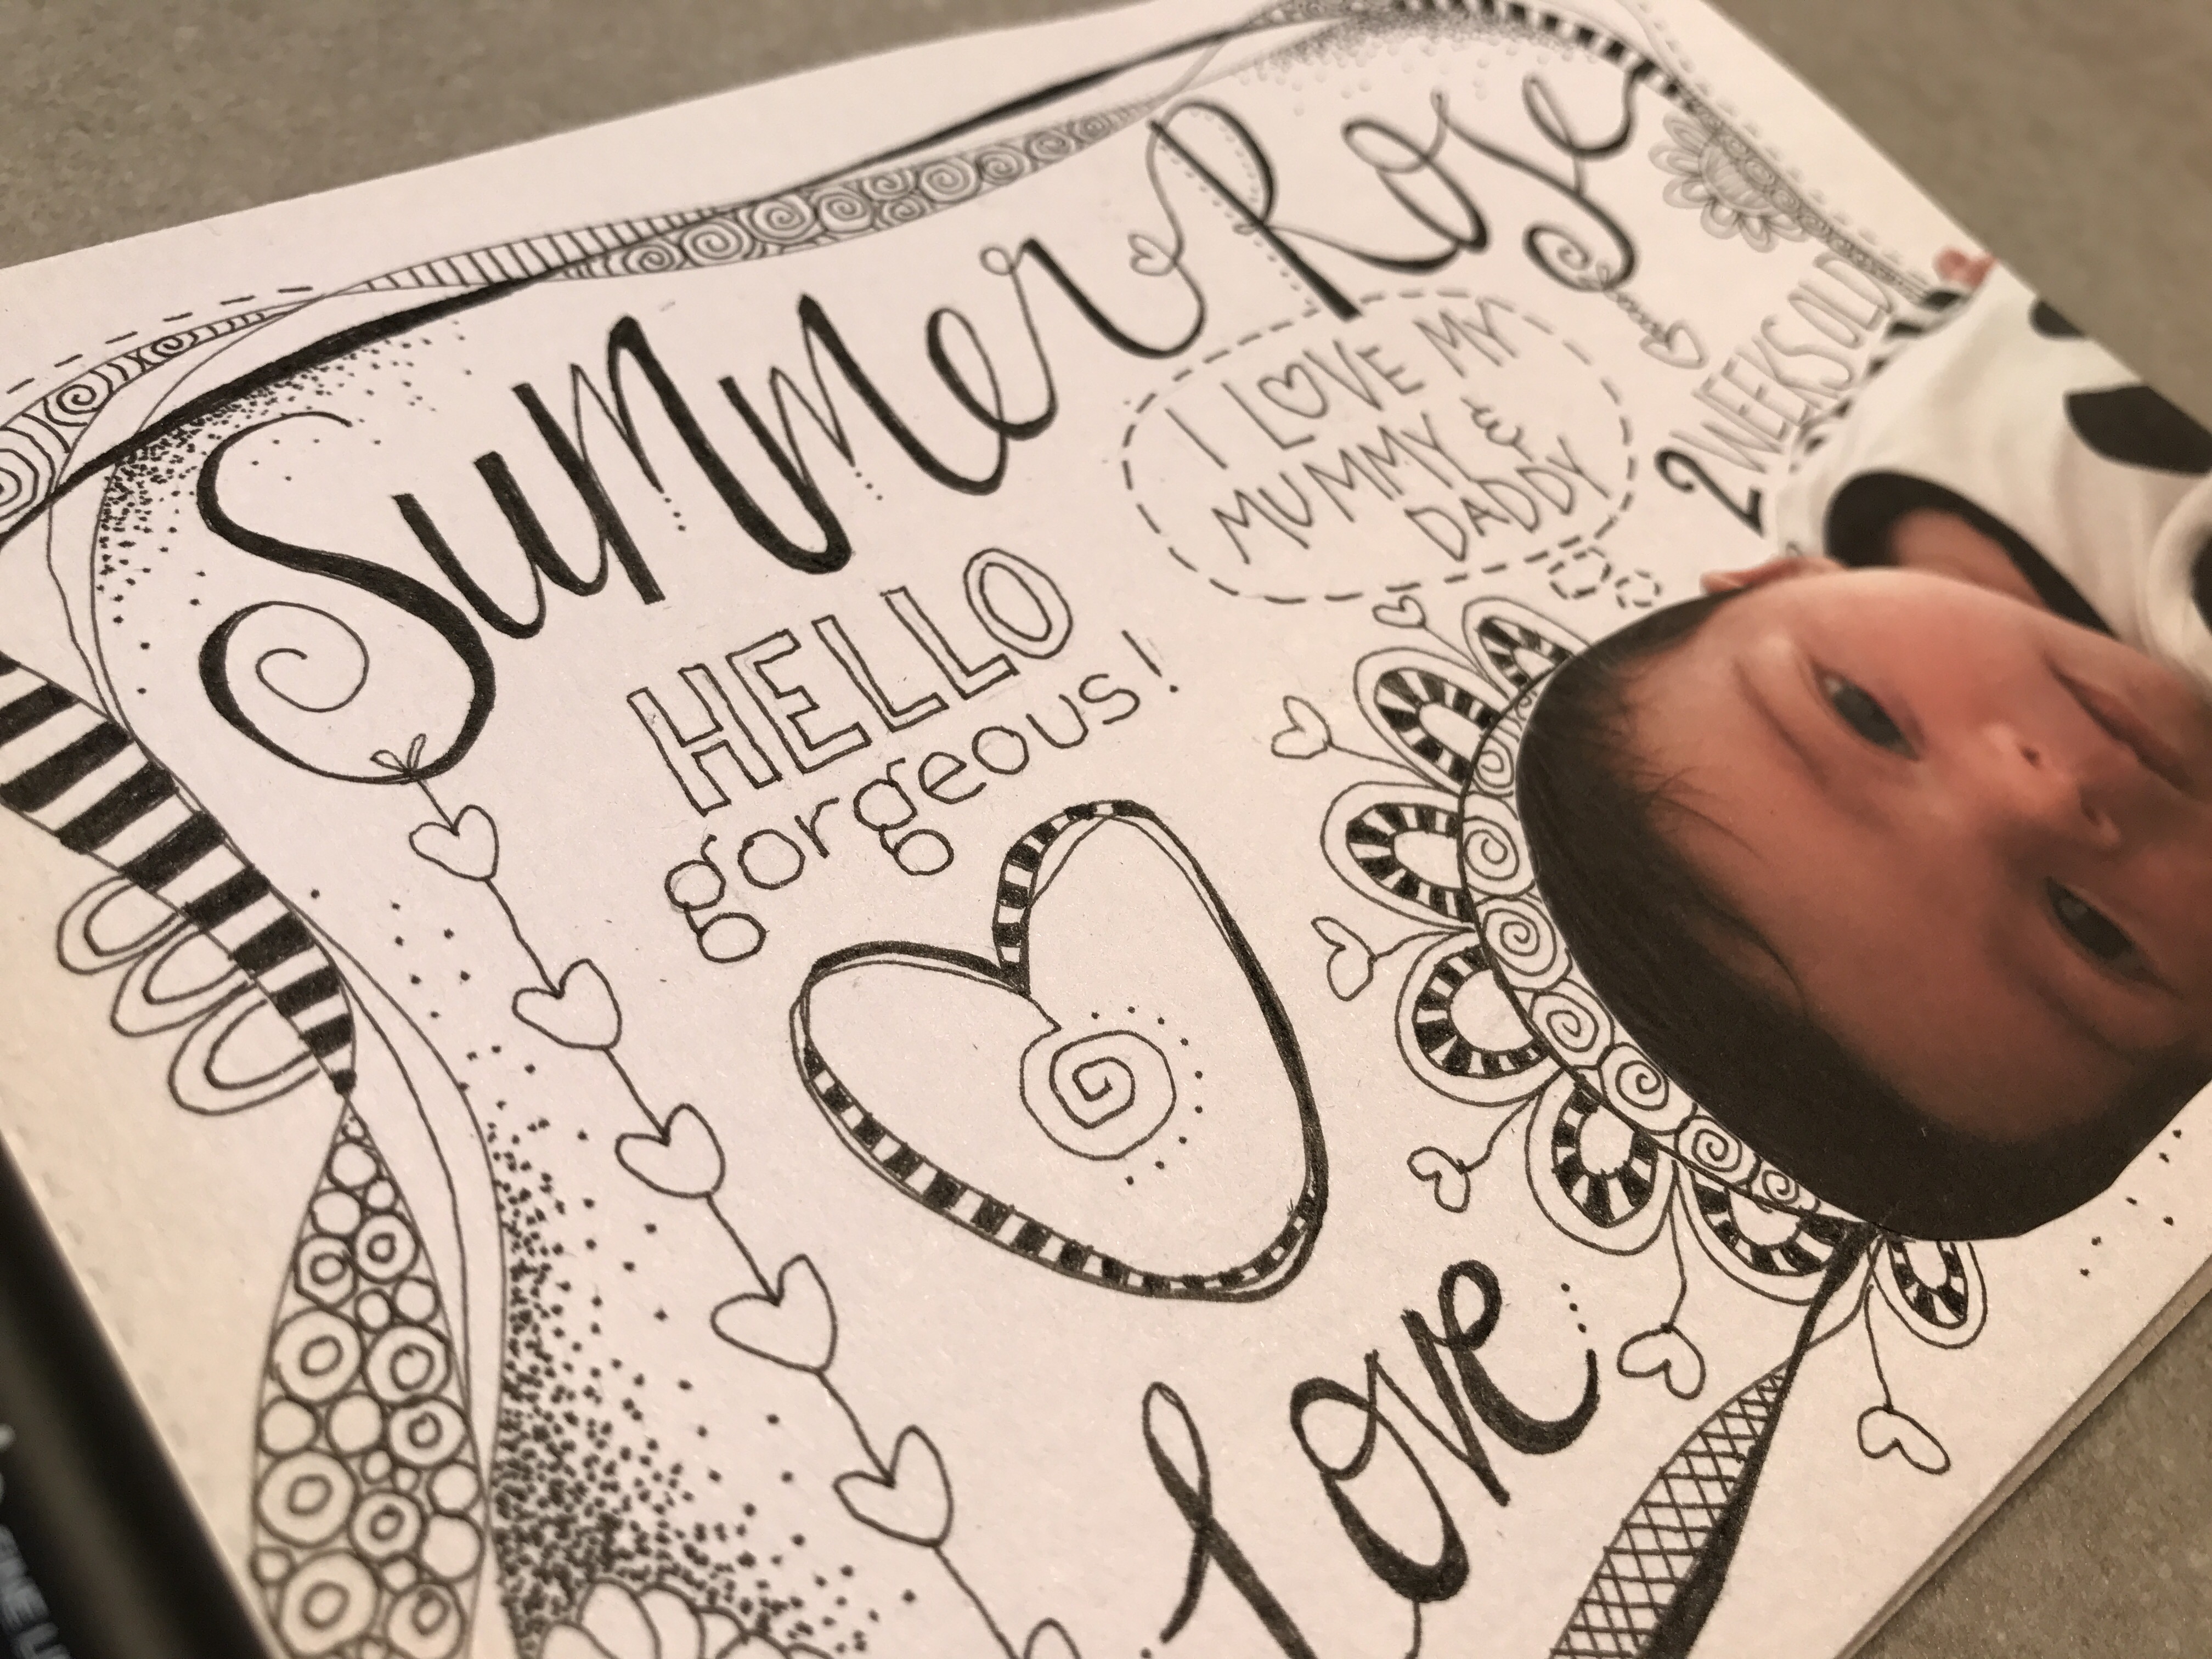 Summer Rose
I LOVE MY
MUMMY &
DADDY
2 WEEKS OLD
HELLO
gorgeous!
Love